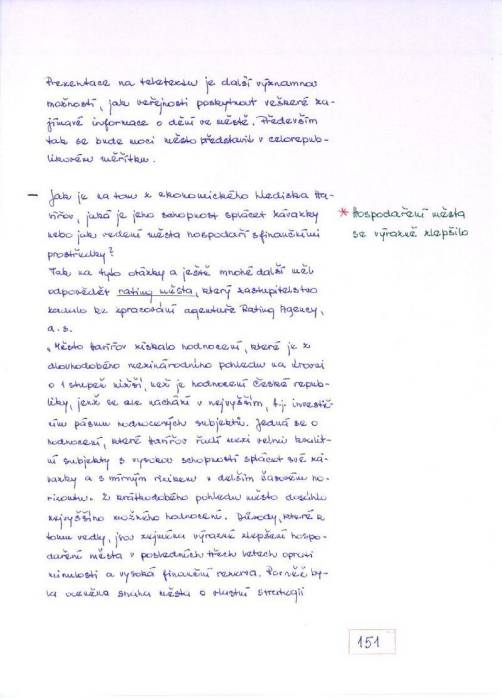 Prezentace na teletextu je další významnou
možností, jak veřejnosti poskytnout veškeré za-
jímavé informace o dění ve městě. Především
tak se bude moci město představit v celorepub-
likovém měřítku.
– Jak je na tom z ekonomického hlediska Ha-
vířov, jaká je jeho schopnost splácet závazky
nebo jak vedení města hospodaří s finančními
prostředky?
* Hospodaření města
se výrazně zlepšilo
Tak na tyto otázky a ještě mnohé další měl
odpovědět rating města, který zastupitelstvo
zadalo ke zpracování agentuře Rating Agency,
a.s.
„Město Havířov získalo hodnocení, které je z
dlouhodobého mezinárodního pohledu na úrovni
o 1 stupeň nižší, než je hodnocení České repub-
liky, jenž se ale nachází v nejvyšším, t.j. investič-
ním pásmu hodnocených subjektů. Jedná se o
hodnocení, které Havířov řadí mezi velmi kvalit-
ní subjekty s vysokou schopností splácet své zá-
vazky a s mírným rizikem v delším časovém ho-
rizontu. Z krátkodobého pohledu město dosáhlo
nejvyššího možného hodnocení. Důvody, které k
tomu vedly, jsou zejména výrazné zlepšení hospo-
daření města v posledních třech letech oproti
minulosti a vysoká finanční rezerva. Rovněž by-
la oceněna snaha města o vlastní strategii
151